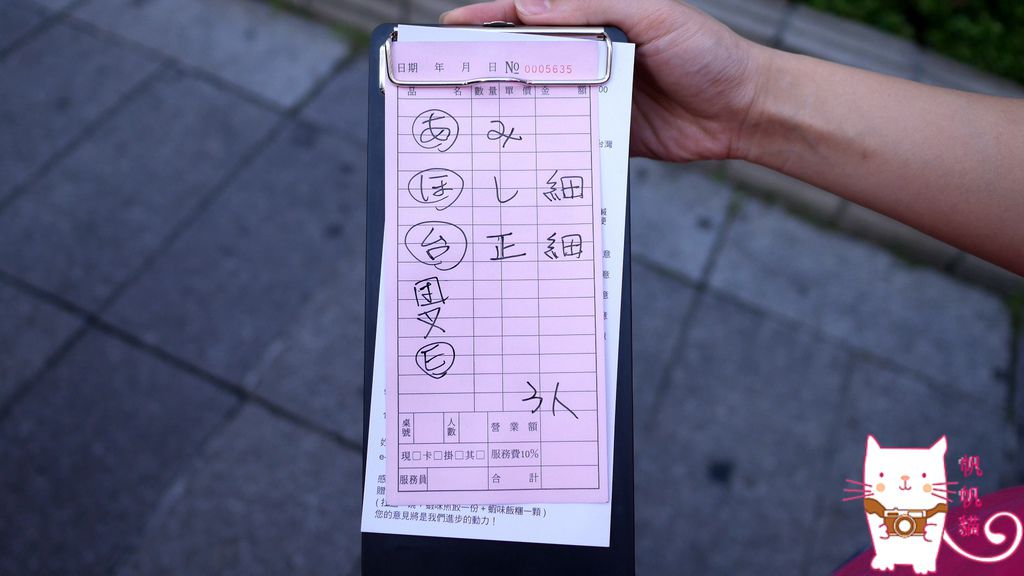 日期 年 月 日 № 0005635
品 名 數量 單價 金 額
あ み
ほ し 細
台 正 細
E
3人
桌號 人數 營業額
現□卡□掛□其□ 服務費10%
服務員 合 計
00
台灣
意
意
意
意
感
贈
飯糰一顆)
您的意見將是我們進步的動力！
帆帆貓